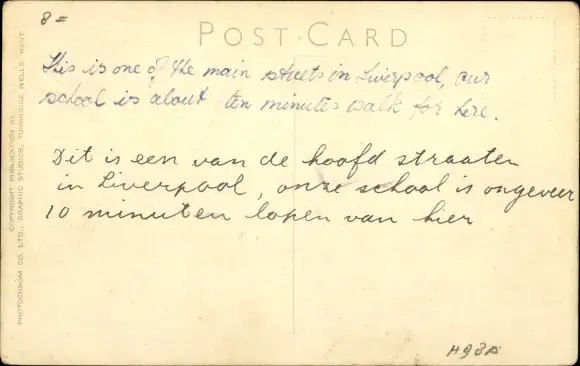 8=
POST·CARD
This is one of the main streets in Liverpool, our
school is about ten minutes walk for here.
Dit is een van de hoofd straaten
in Liverpool, onze school is ongeveer
10 minuten lopen van hier
COPYRIGHT PUBLICATION BY
PHOTOCHROM CO. LTD., GRAPHIC STUDIOS, TUNBRIDGE WELLS, KENT.
H98A